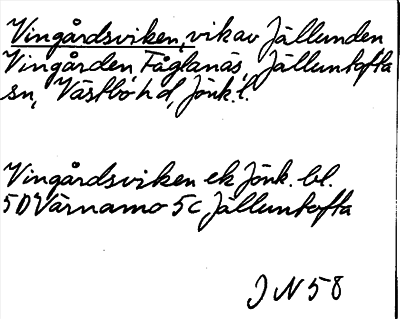 Vingårdsviken, vik av Jällunden
Vingården, Fåglanäs, Jälluntofta
sn, Västbo hd, Jönk. l.
Vingårdsviken ek Jönk. bl.
5D Värnamo 5c Jälluntofta
J N 58